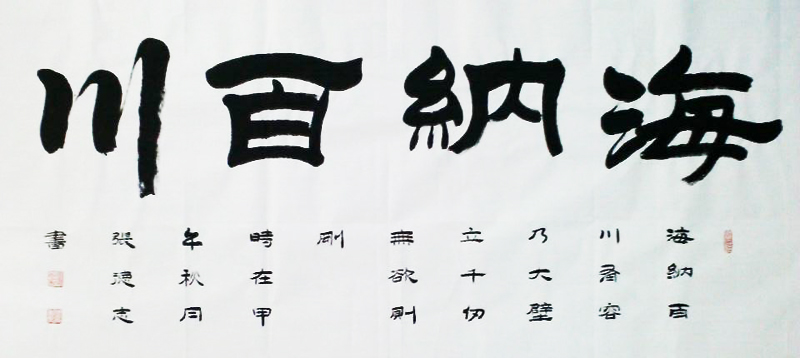 海納百川
海納百
川有容
乃大壁
立千仞
無欲則
剛
時在甲
午秋月
張德志
書